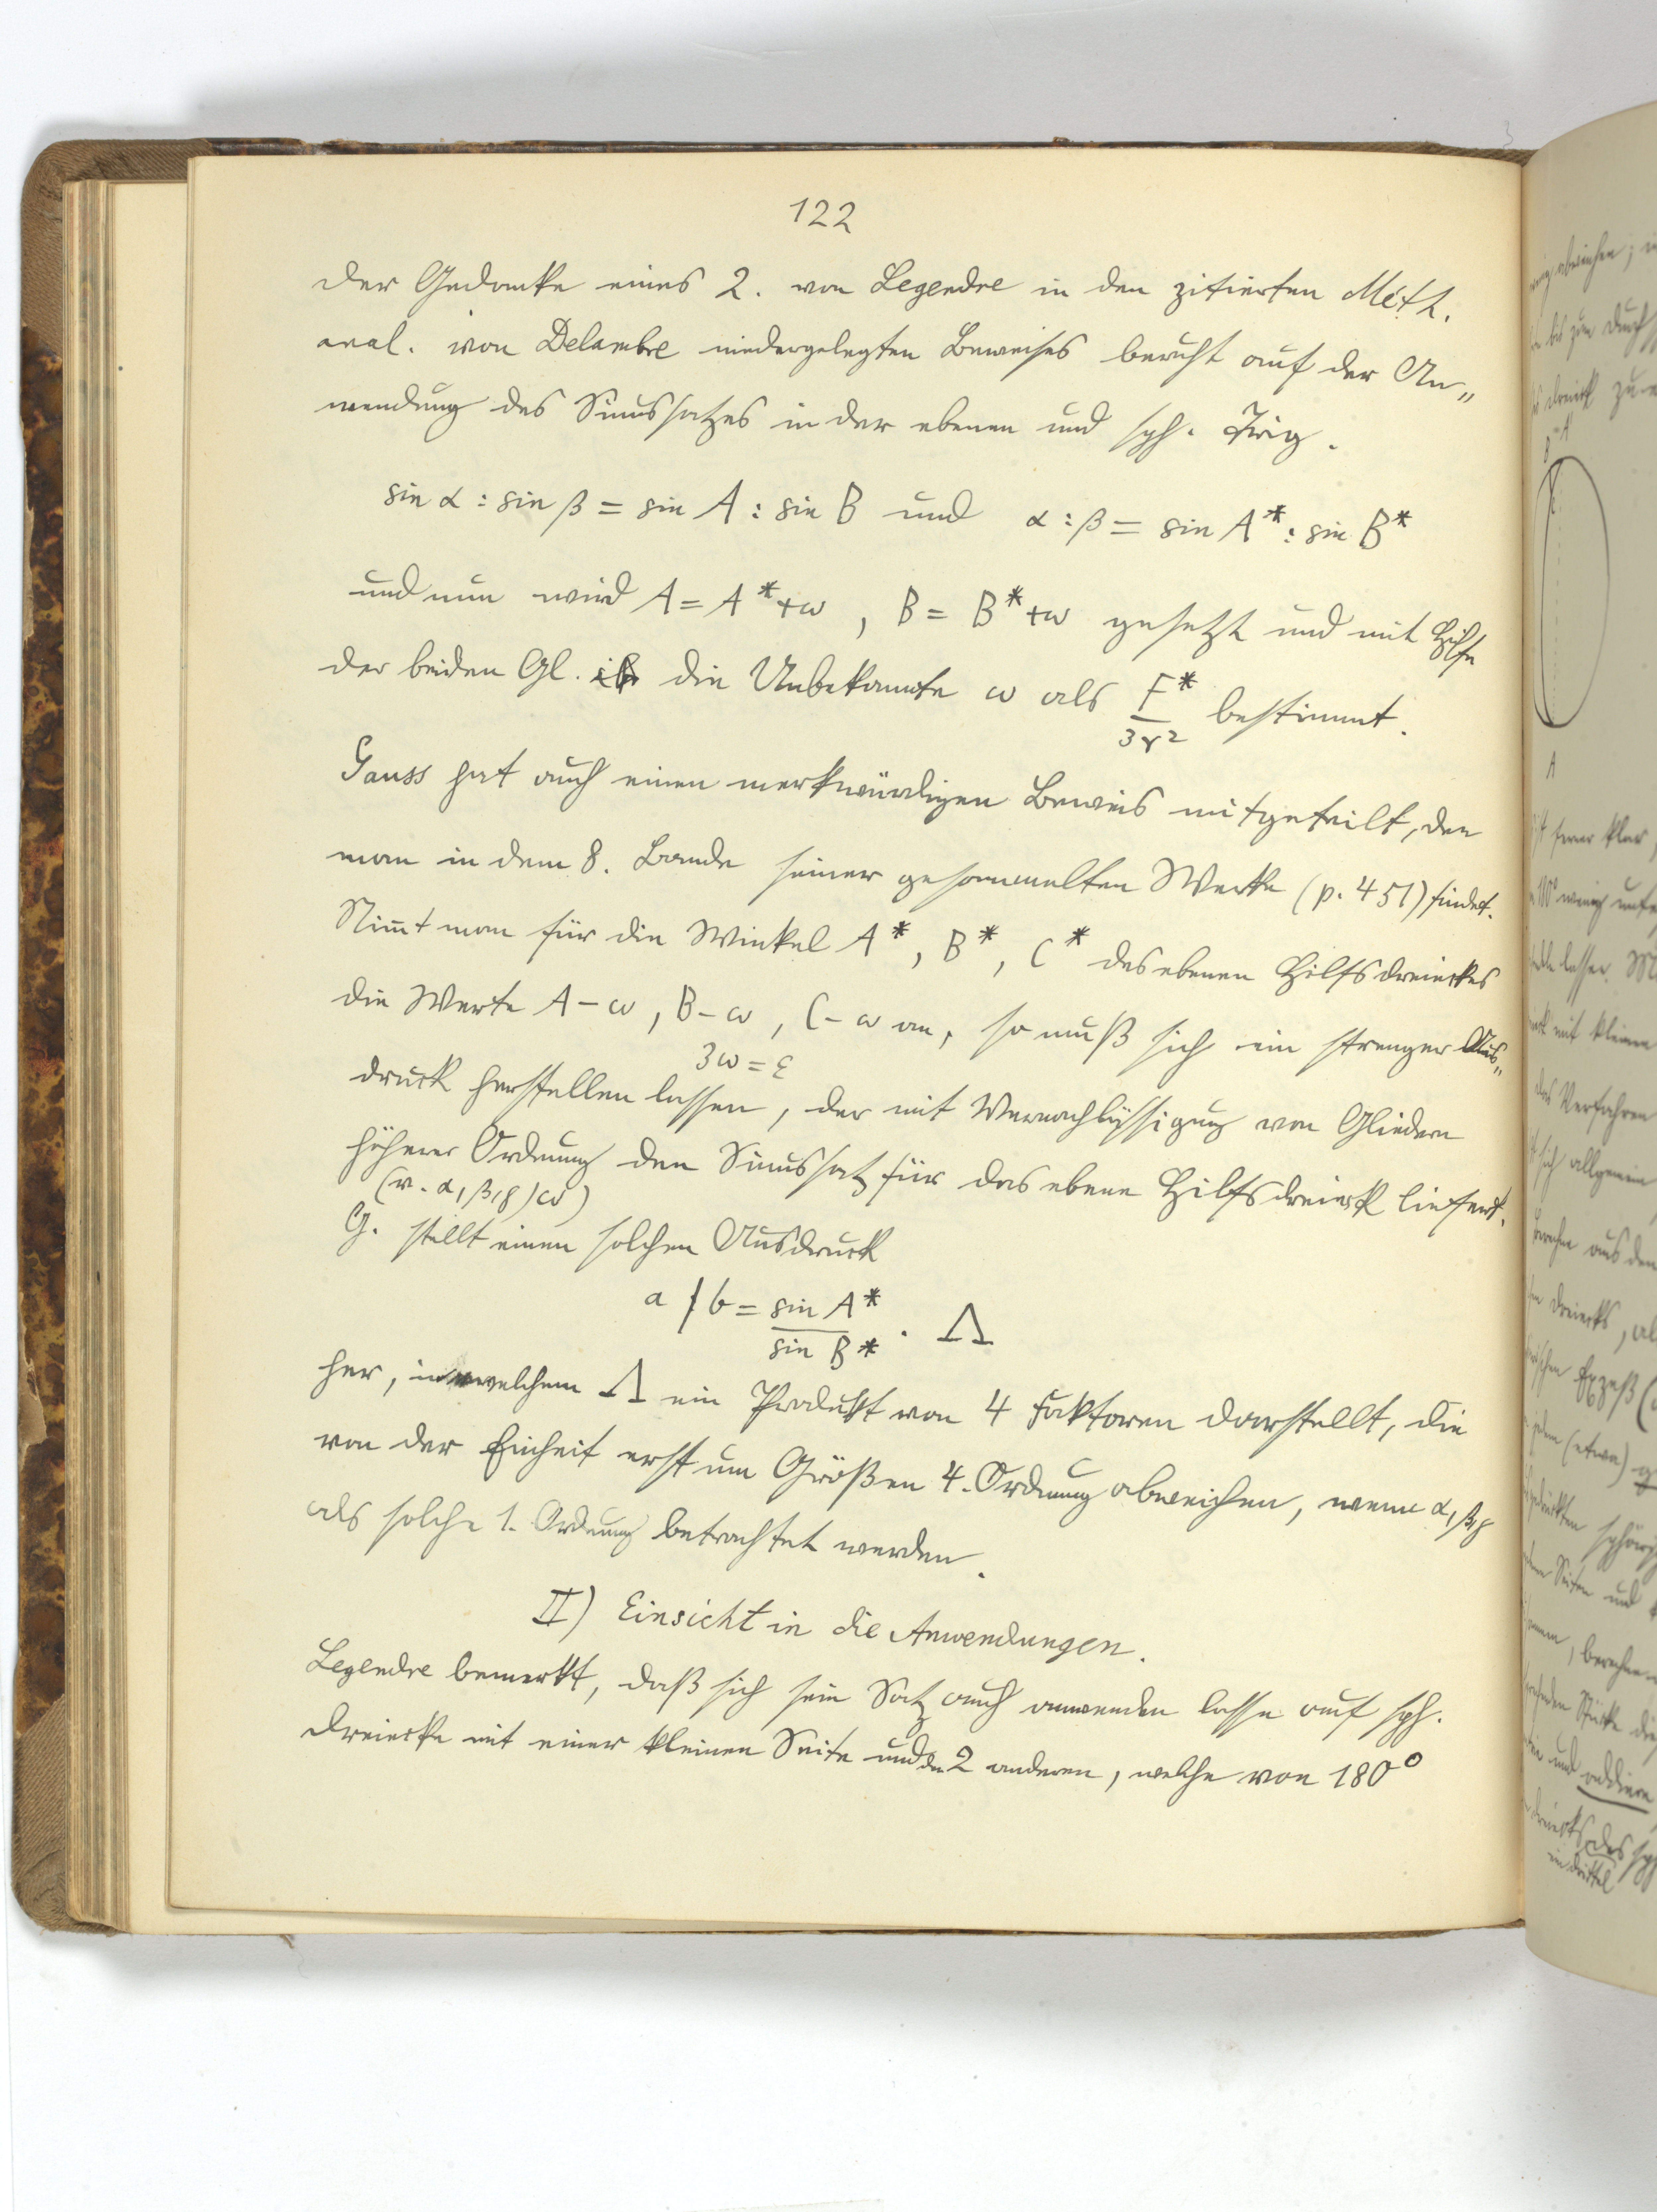 122
Der Gedanke eines 2. von Legendre in den zitierten Méth.
anal. von Delambre niedergelegten Beweises beruht auf der An„
wendung des Sinussatzes in der ebenen und sph. Trig.
sin α : sin β = sin A : sin B und α : β = sin A* : sin B*
und nun wird A = A* + ω , B = B* + ω gesetzt und mit Hilfe
der beiden Gl. die Unbekannte ω als F*/3r² bestimmt.
Gauss hat auch einen merkwürdigen Beweis mitgeteilt, den
man in dem 8. Bande seiner gesammelten Werke (p. 451) findet.
Nim̄t man für die Winkel A*, B*, C* des ebenen Hilfsdreieckes
die Werte A – ω , B – ω , C – ω an, so muß sich ein strenger Aus„
3ω = ε
druck herstellen lassen, der mit Vernachlässigung von Gliedern
höherer Ordnung den Sinussatz für das ebene Hilfsdreieck liefert.
(v. α, β, γ, ω)
G. stellt einen solchen Ausdruck
a / b = sin A* / sin B* · Λ
her, in welchem Λ ein Produkt von 4 Faktoren darstellt, die
von der Einheit erst um Größen 4. Ordnung abweichen, wenn α, β, γ
als solche 1. Ordnung betrachtet werden.
II) Einsicht in die Anwendungen.
Legendre bemerkt, daß sich sein Satz auch anwenden lasse auf sph.
Dreiecke mit einer kleinen Seite und den 2 anderen, welche von 180°